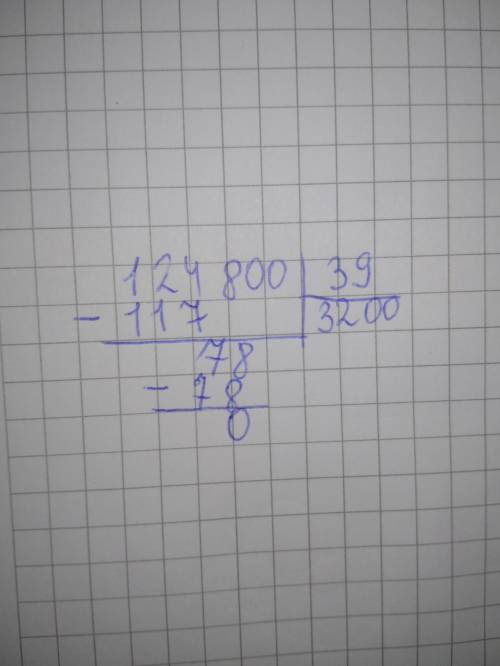 124 800 39
- 117 3200
78
- 78
0